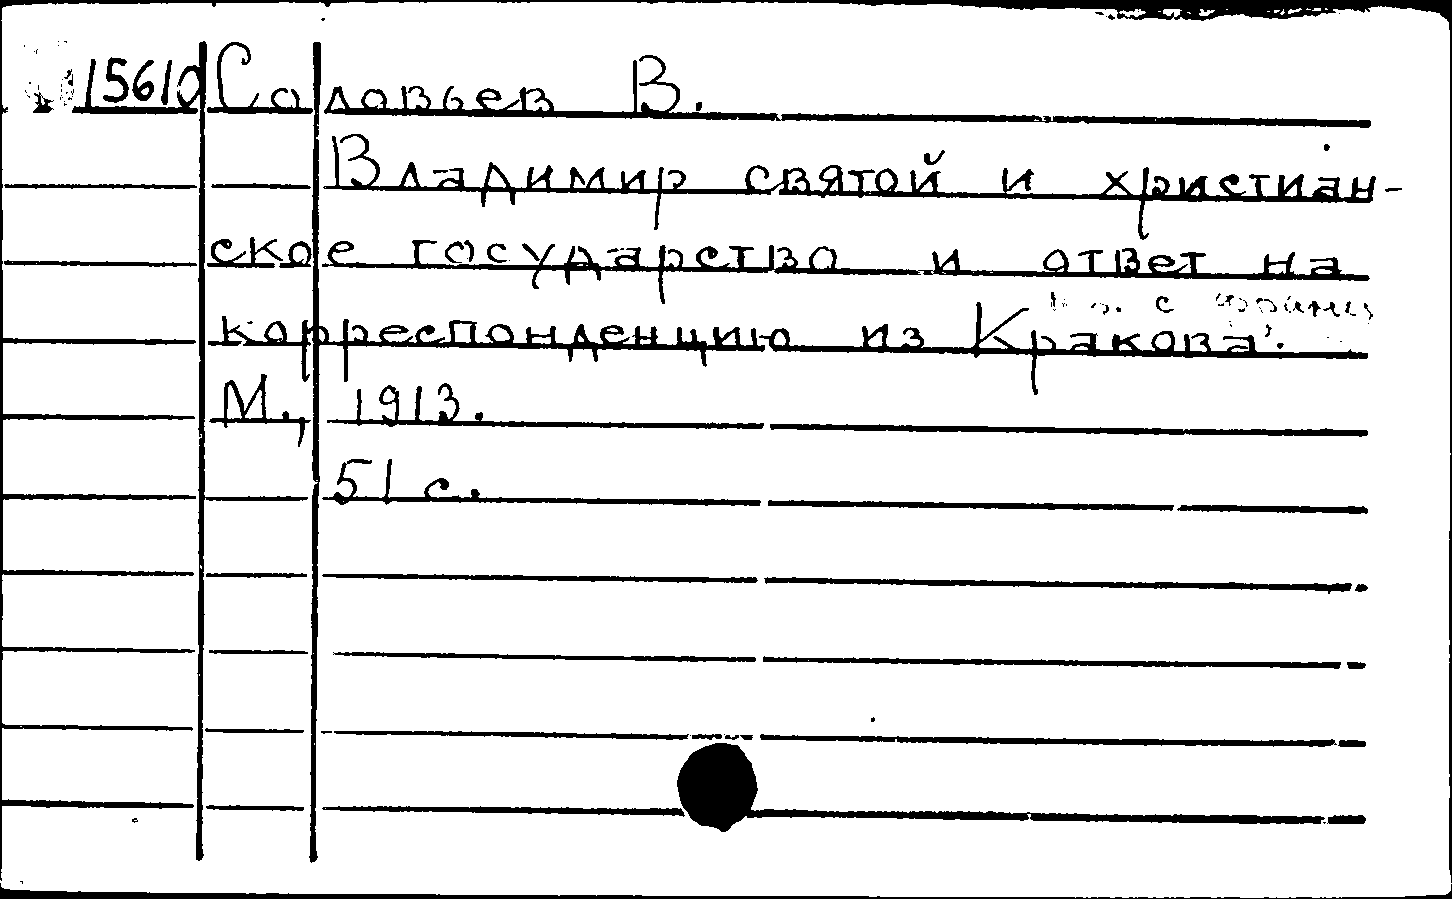 15610 Соловьев В.
Владимир святой и христиан-
ское государство и ответ на
с франц
корреспонденцию из Кракова.
М., 1913.
51 с.